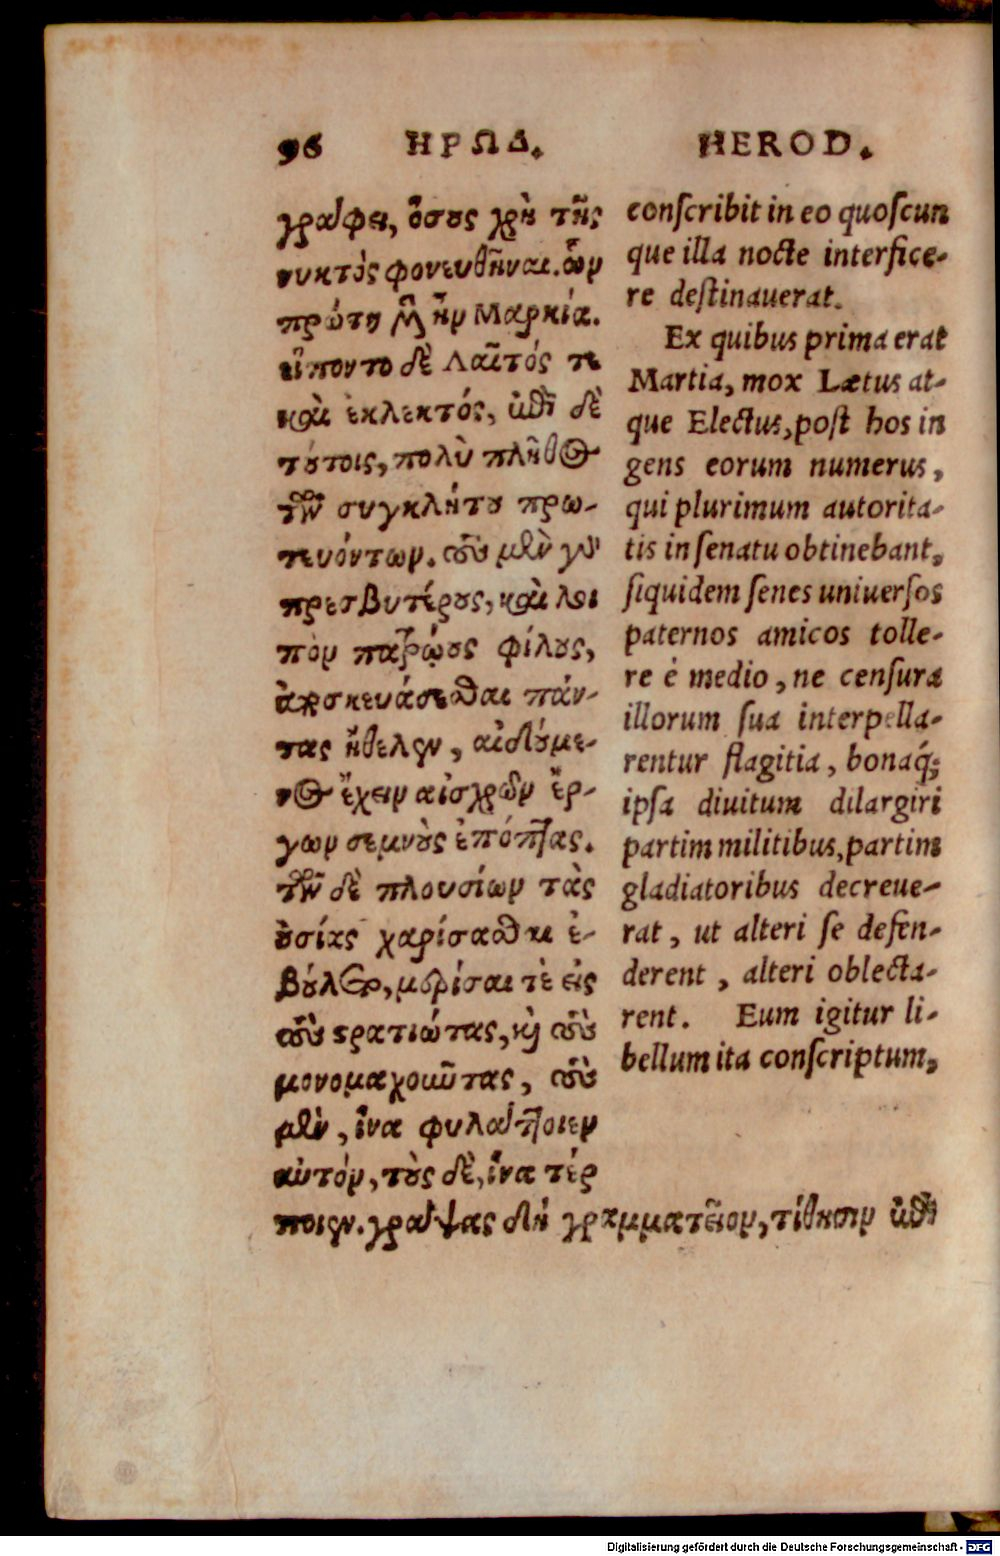 96 ΗΡΩΔ. HEROD.
γράφει, ὅσους χρὴ τῆς
νυκτὸς φονευθῆναι. ὧν
πρώτη μὲν ἦν Μαρκία.
εἵποντο δὲ Λαῖτός τε
καὶ ἐκλεκτός, ἐπὶ δὲ
τούτοις, πολὺ πλῆθος
τῶν συγκλήτου πρω-
τευόντων. τοὺς μὲν γὰρ
πρεσβυτέρους, καὶ λοι
πὸν πατρώους φίλους,
ἀποσκευάσεσθαι πάν-
τας ἤθελεν, αἰδούμε-
νος ἔχειν αἰσχρῶν ἔρ-
γων σεμνοὺς ἐπόπτας.
τῶν δὲ πλουσίων τὰς
οὐσίας χαρίσασθαι ἐ-
βούλετο, μερίσαι τὲ εἰς
τοὺς στρατιώτας, καὶ τοὺς
μονομαχοῦντας, τοὺς
μὲν, ἵνα φυλάττοιεν
αὐτόν, τοὺς δὲ, ἵνα τέρ
ποιεν. γράψας δὴ γραμματεῖον, τίθησιν ἐπὶ
conſcribit in eo quoſcun
que illa nocte interfice-
re deſtinauerat.
Ex quibus prima erat
Martia, mox Lætus at-
que Electus, poſt hos in
gens eorum numerus,
qui plurimum autorita-
tis in ſenatu obtinebant,
ſiquidem ſenes uniuerſos
paternos amicos tolle-
re é medio, ne cenſura
illorum ſua interpella-
rentur flagitia, bonaq́;
ipſa diuitum dilargiri
partim militibus, partim
gladiatoribus decreue-
rat, ut alteri ſe defen-
derent, alteri oblecta-
rent. Eum igitur li-
bellum ita conſcriptum,
Digitalisierung gefördert durch die Deutsche Forschungsgemeinschaft - DFG